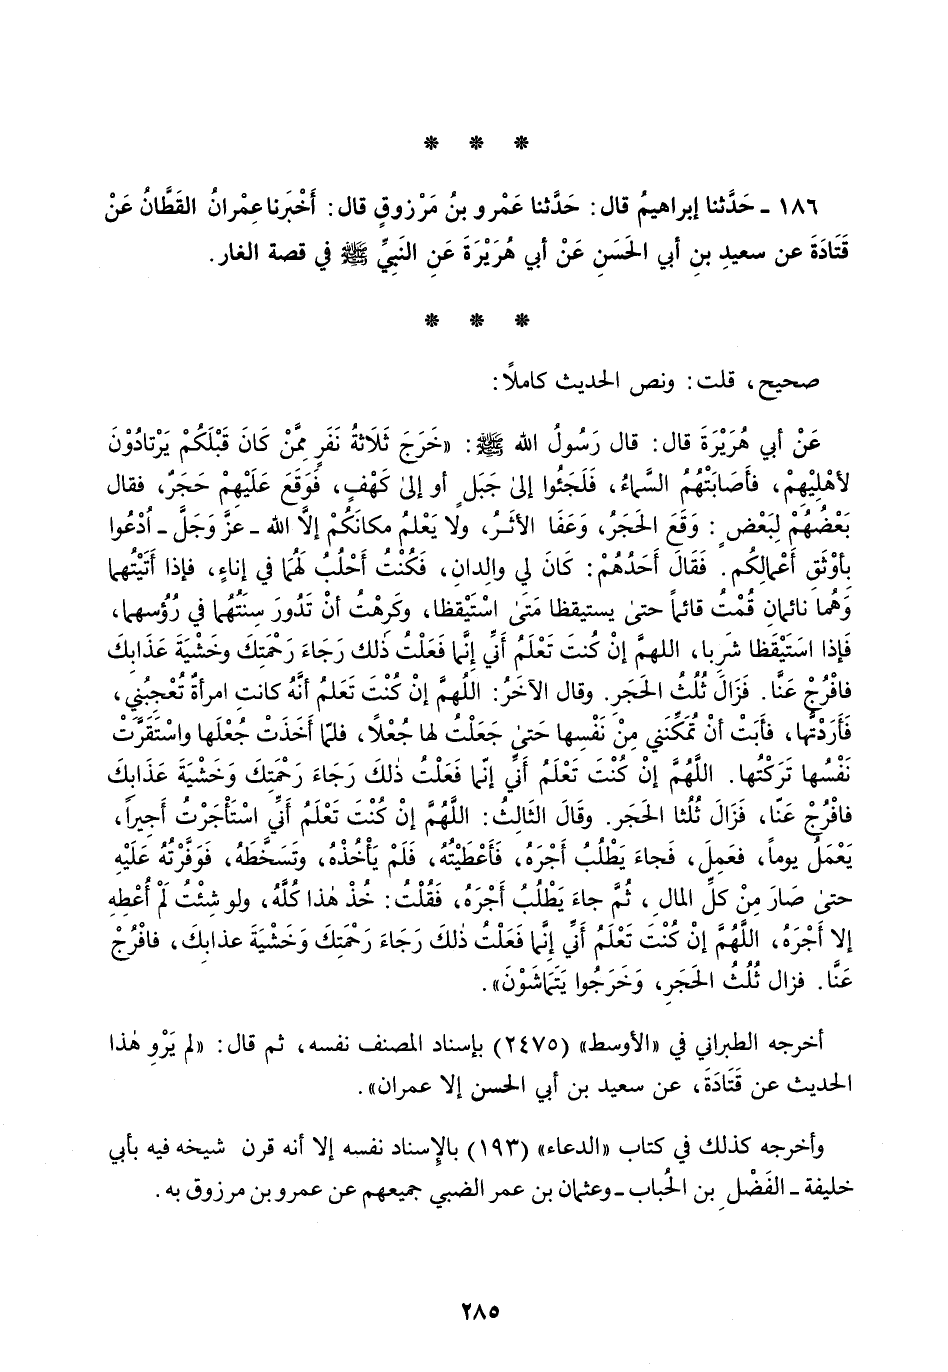 * * *
١٨٦ - حَدَّثنا إبراهيمُ قال: حَدَّثنا عَمْرو بنُ مَرْزوقٍ قال: أَخْبَرنا عِمْرانُ القَطَّانُ عَنْ
قَتَادَةَ عن سعيدِ بنِ أبي الحَسَنِ عَنْ أبي هُرَيْرَةَ عَنِ النَبيِّ ﷺ في قصة الغار.
* * *
صحيح، قلت: ونص الحديث كاملاً:
عَنْ أبي هُرَيْرَةَ قال: قال رَسُولُ الله ﷺ: «خَرَجَ ثَلَاثةُ نَفَرٍ مِمَّنْ كَانَ قَبْلَكُمْ يَرْتادُوْنَ
لأهْلِيْهِمْ، فأصَابَتْهُمُ السَّماءُ، فَلَجَئُوا إلىٰ جَبَلٍ أو إلىٰ كَهْفٍ، فَوَقَعَ عَلَيْهِمْ حَجَرٌ، فقال
بَعْضُهُمْ لِبَعْضٍ: وَقَعَ الحَجَرُ، وَعَفَا الأثَرُ، ولا يَعْلمُ مكانَكُمْ إلاَّ الله - عزَّ وَجَلَّ - اُدْعُوا
بأوْثَقِ أعْمالِكُم. فَقَالَ أحَدُهُمْ: كَانَ لي والِدانِ، فَكُنْتُ أحْلُبُ لَهُما في إناءٍ، فإذا أَتَيْتُهما
وَهُما نائمانِ قُمْتُ قائماً حتىٰ يستيقظا مَتَىٰ اسْتَيْقظا، وكَرِهْتُ أنْ تَدُورَ سِنَتُهُما في رُؤُسهما،
فَإذا اسَتَيْقَظا شَرِبا، اللهمَّ إنْ كُنتَ تَعْلَمُ أنِّي إنَّما فَعَلْتُ ذٰلك رَجَاءَ رَحْمَتِكَ وخَشْيَةَ عَذَابِكَ
فافْرُجْ عَنَّا. فَزَالَ ثُلُثُ الحَجَرِ. وقال الآخَرُ: اللَّهُمَّ إنْ كُنْتَ تَعلمُ أنَّهُ كانت امرأةٌ تُعجِبُني،
فَأَرَدْتُها، فأبَتْ أنْ تُمَكِّنَني مِنْ نَفْسِها حَتىٰ جَعَلْتُ لها جُعْلاً، فلمّا أخَذَتْ جُعْلَها واسْتَقَرَّتْ
نَفْسُها تَرَكْتُها. اللَّهُمَّ إنْ كُنْتَ تَعْلَمُ أنِّي إنّما فَعَلْتُ ذٰلكَ رَجَاءَ رَحْمَتِكَ وَخَشْيَةَ عَذَابِكَ
فافْرُجْ عَنّا، فَزَالَ ثُلُثا الحَجَرِ. وقَالَ الثالِثُ: اللَّهُمَّ إنْ كُنْتَ تَعْلَمُ أنِّي اسْتَأْجَرْتُ أجِيراً،
يَعْمَلُ يوماً، فعَمِلَ، فَجاءَ يَطْلُبُ أجْرَهُ، فَأَعْطَيْتُهُ، فَلَمْ يَأْخُذْهُ، وتَسَخَّطَهُ، فَوَفَّرْتُهُ عَلَيْهِ
حتىٰ صَارَ مِنْ كلِّ المالِ، ثُمَّ جاءَ يَطْلُبُ أجْرَهُ، فَقُلْتُ: خُذْ هٰذا كُلَّهُ، ولو شِئْتُ لَمْ أُعْطِهِ
إلا أجْرَهُ، اللَّهُمَّ إنْ كُنْتَ تَعْلَمُ أنِّي إنَّما فَعَلْتُ ذٰلكَ رَجَاءَ رَحْمَتِكَ وَخَشْيَةَ عذابِكَ، فافْرُجْ
عَنَّا. فزال ثُلُثُ الحَجَرِ، وَخَرَجُوا يَتَمَاشَوْنَ».
أخرجه الطبراني في «الأوسط» (٢٤٧٥) بإسناد المصنف نفسه، ثم قال: «لم يَرْوِ هٰذا
الحديث عن قَتَادَةَ، عن سعيد بن أبي الحسن إلا عمران».
وأخرجه كذلك في كتاب «الدعاء» (١٩٣) بالإِسناد نفسه إلا أنه قرن شيخه فيه بأبي
خليفة - الفَضْل بن الحُباب - وعثمان بن عمر الضبي جميعهم عن عمرو بن مرزوق به.
٢٨٥